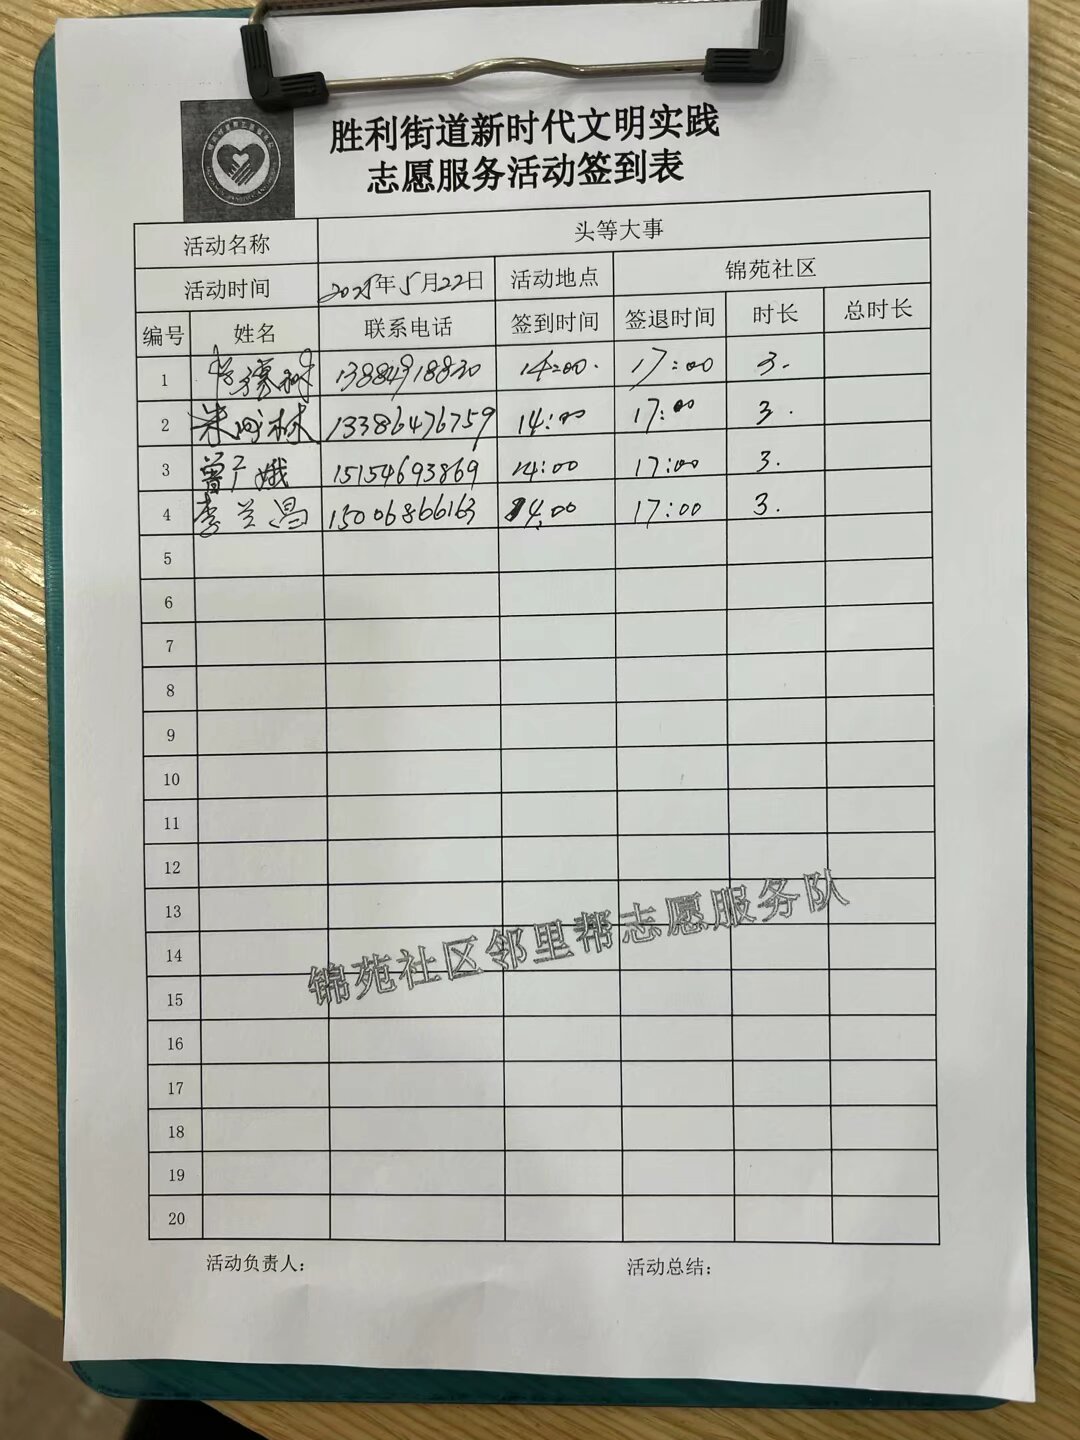 胜利街道新时代文明实践
志愿服务活动签到表
活动名称 头等大事
活动时间 2025年5月22日 活动地点 锦苑社区
编号 姓名 联系电话 签到时间 签退时间 时长 总时长
1 13884918830 14:00. 17:00 3.
2 13386476759 14:00 17:00 3.
3 曾广娥 15154693869 14:00 17:00 3.
4 李兰昌 15006866163 14:00 17:00 3.
5
6
7
8
9
10
11
12
13
14
15
16
17
18
19
20
锦苑社区邻里帮志愿服务队
活动负责人： 活动总结：